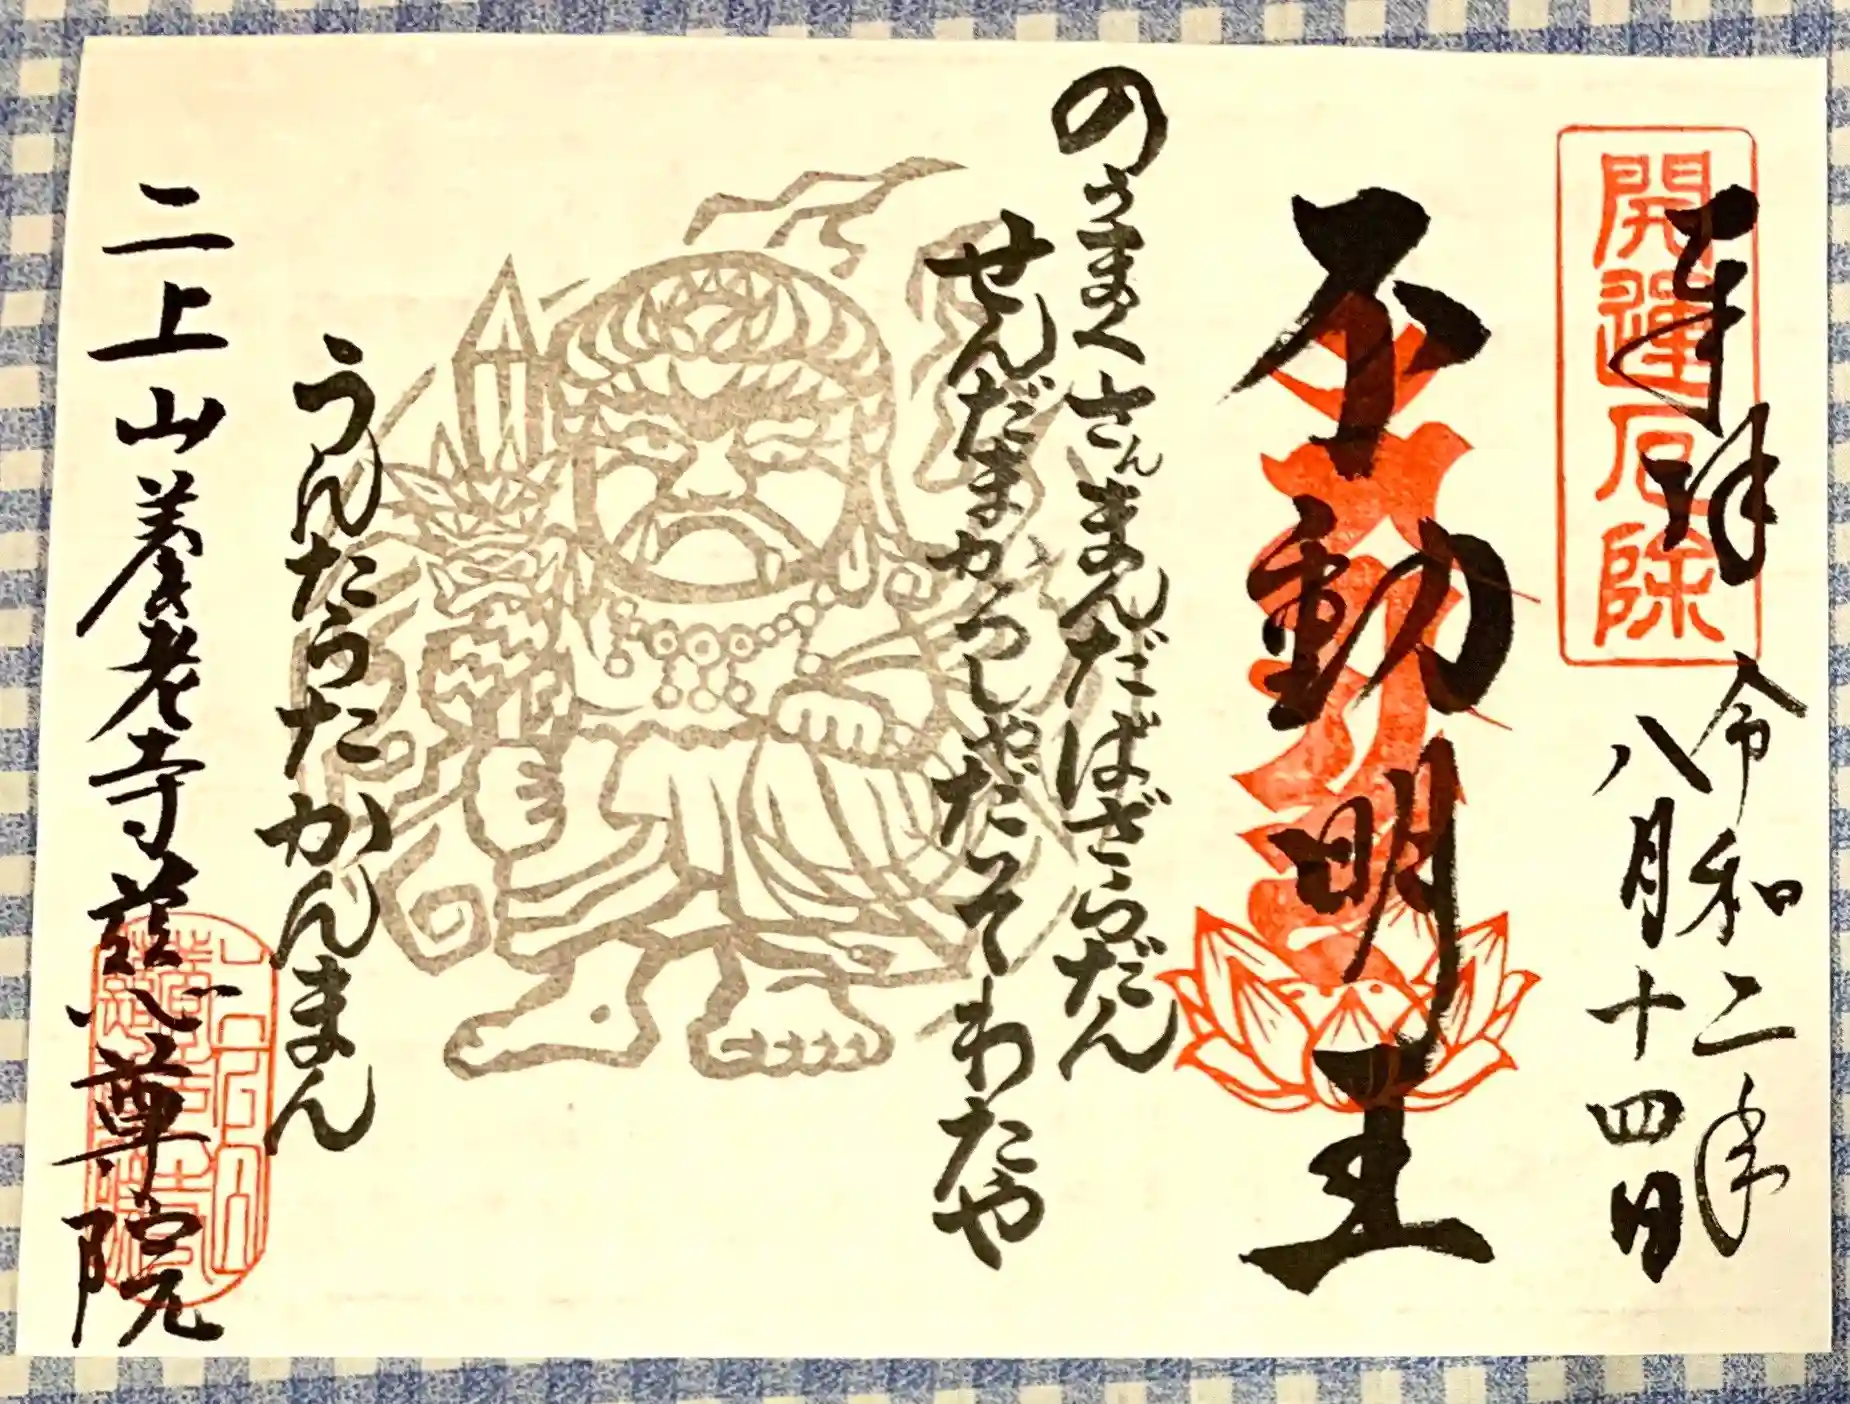 開運厄除
奉拝
令和二年
八月十四日
不動明王
のうまくさんまんだばざらだん
せんだまかろしゃだそわたや
うんたらたかんまん
二上山養老寺慈尊院